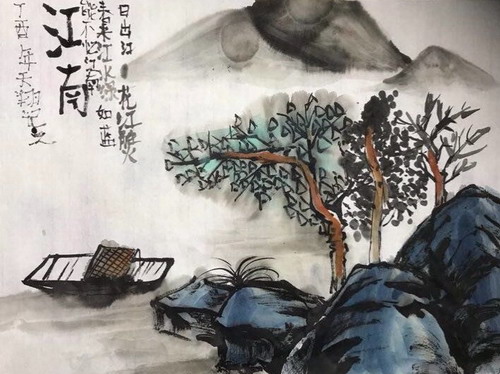 日出江花红胜火
春来江水绿如蓝
能不忆江南
江南
丁酉年天翔